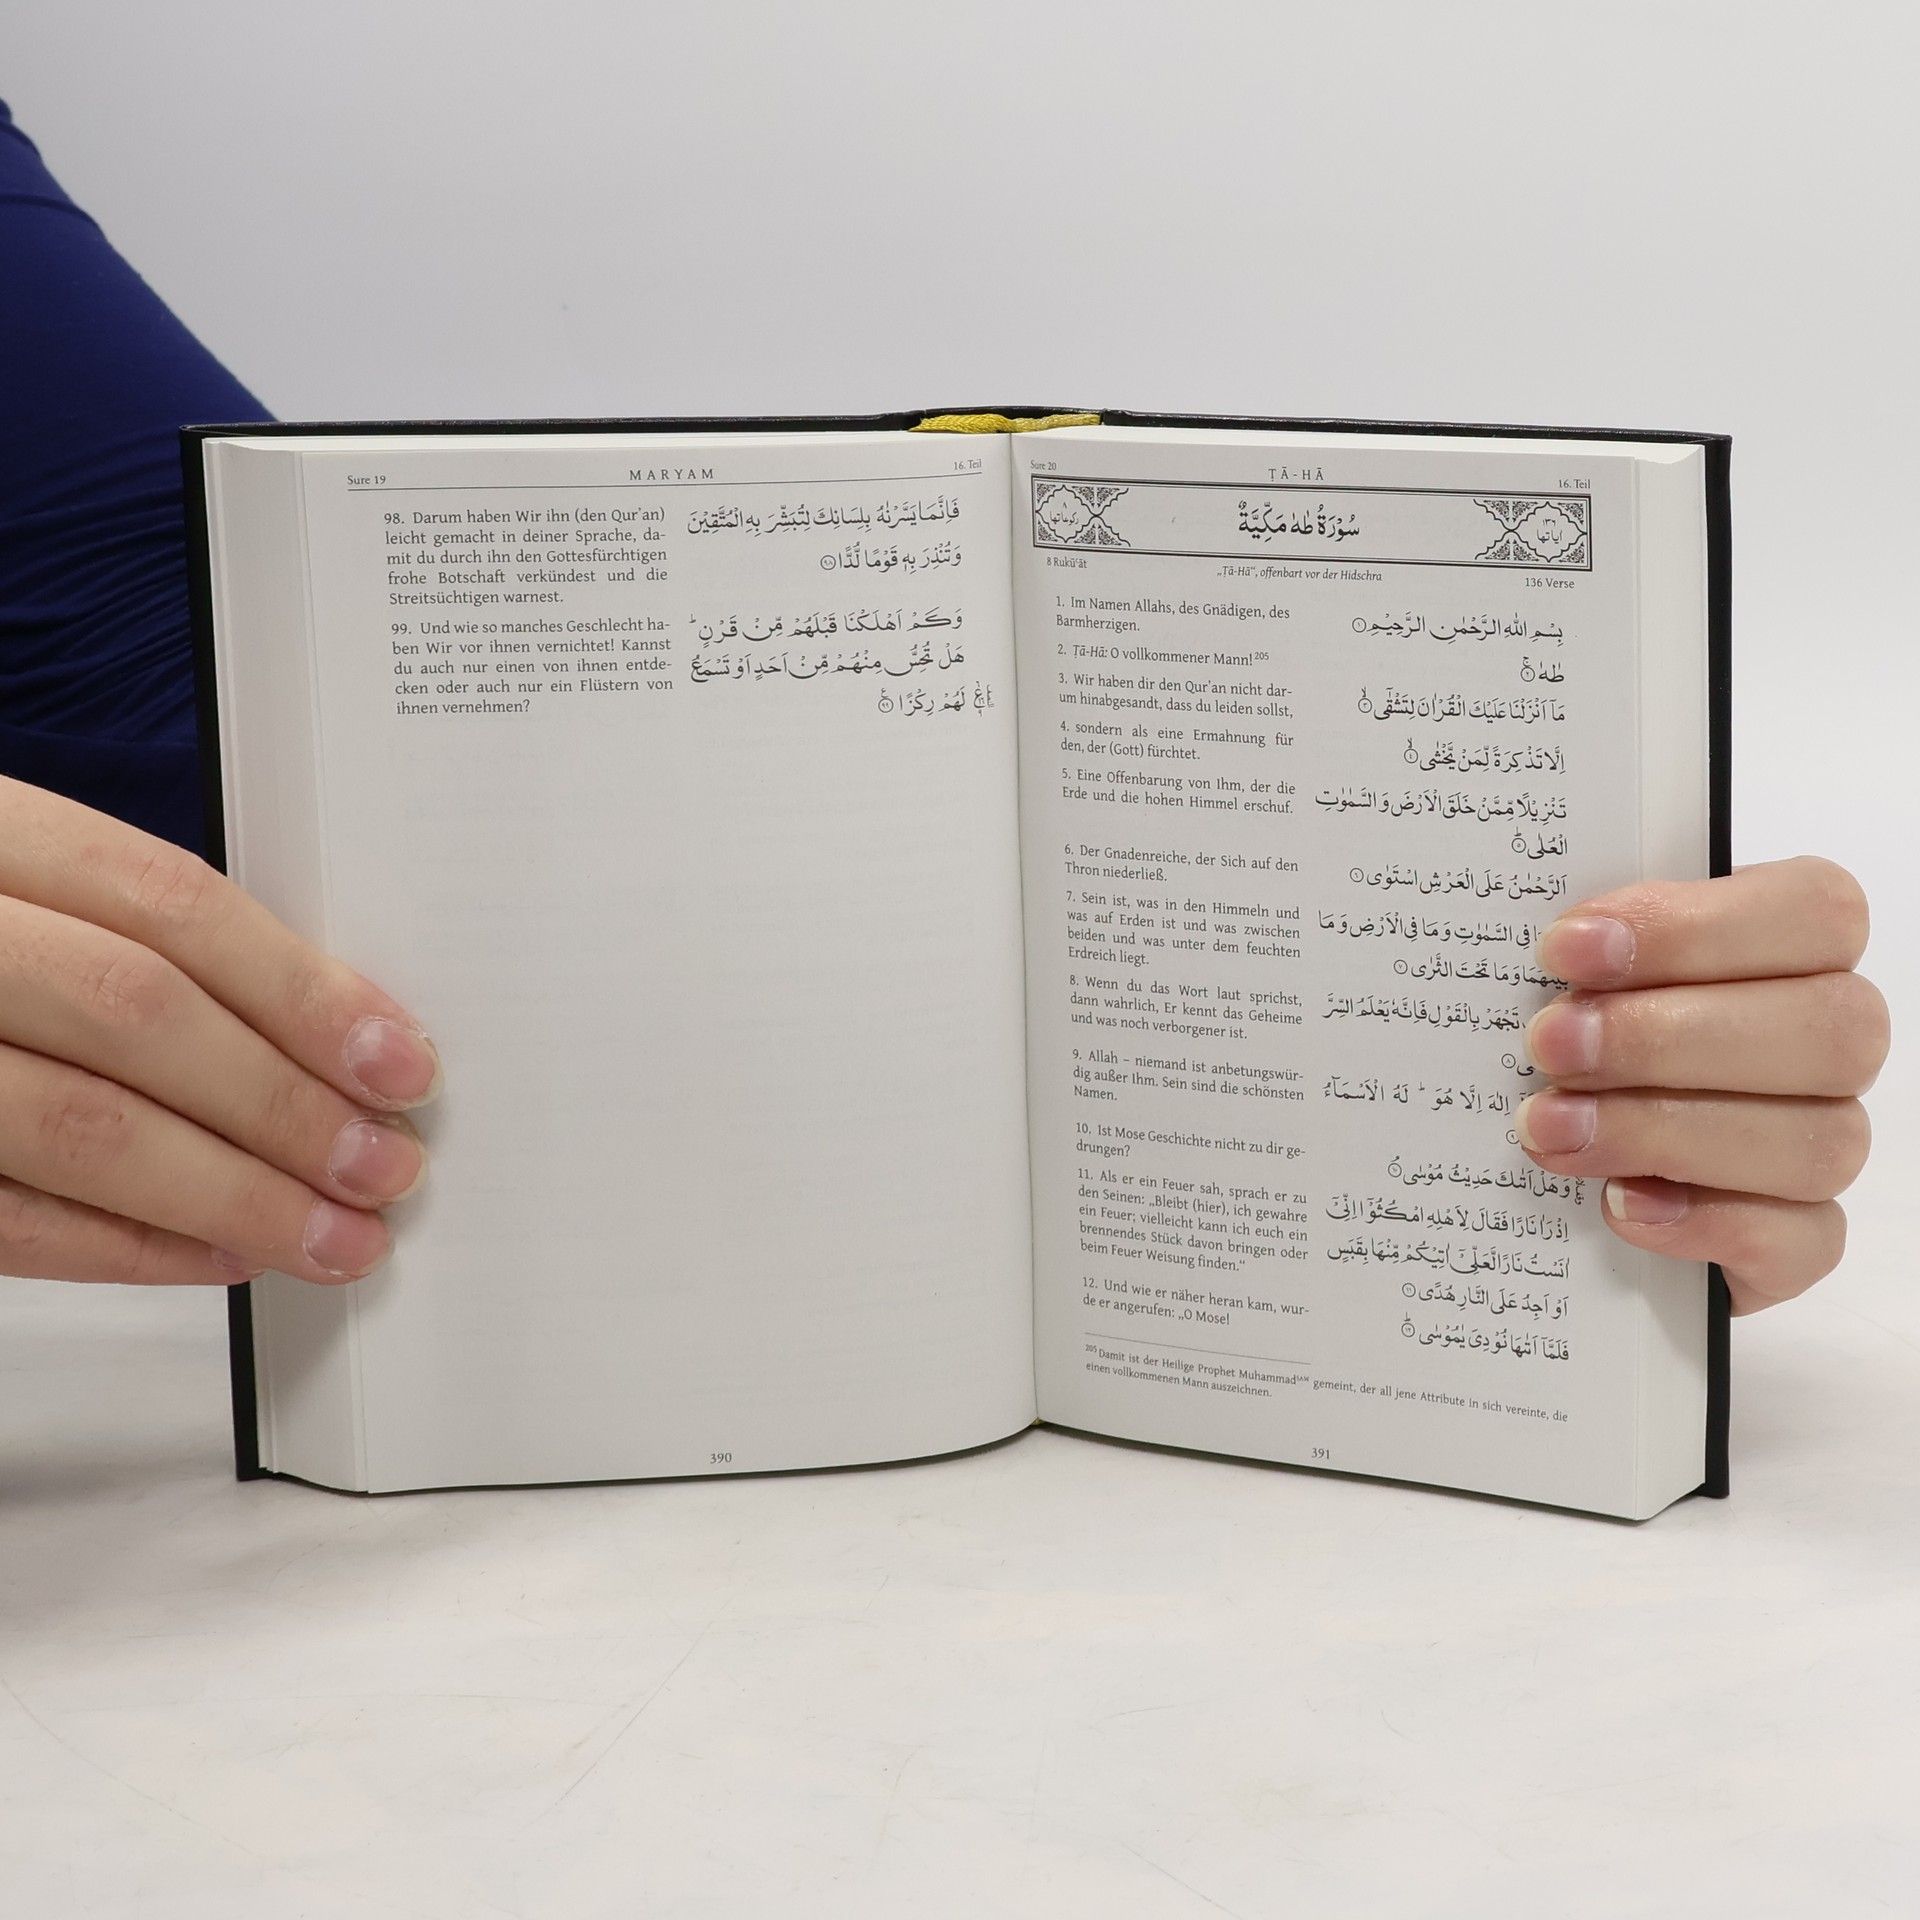 Sure 19
MARYAM
16. Teil
98. Darum haben Wir ihn (den Qur'an)
leicht gemacht in deiner Sprache, da-
mit du durch ihn den Gottesfürchtigen
frohe Botschaft verkündest und die
Streitsüchtigen warnest.
فَاِنَّمَا يَسَّرْنٰهُ بِلِسَانِكَ لِتُبَشِّرَ بِهِ الْمُتَّقِيْنَ
وَتُنْذِرَ بِهٖ قَوْمًا لُّدًّا ۝٩٨
99. Und wie so manches Geschlecht ha-
ben Wir vor ihnen vernichtet! Kannst
du auch nur einen von ihnen entde-
cken oder auch nur ein Flüstern von
ihnen vernehmen?
وَكَمْ اَهْلَكْنَا قَبْلَهُمْ مِّنْ قَرْنٍ ؕ
هَلْ تُحِسُّ مِنْهُمْ مِّنْ اَحَدٍ اَوْ تَسْمَعُ
لَهُمْ رِكْزًا ۝٩٩
390
Sure 20
ṬĀ-HĀ
16. Teil
سُوْرَةُ طٰهٰ مَكِّيَّةٌ
١٣٦
اٰياتها
8 Rukūʿāt
„Ṭā-Hā“, offenbart vor der Hidschra
136 Verse
1. Im Namen Allahs, des Gnädigen, des
Barmherzigen.
بِسْمِ اللّٰهِ الرَّحْمٰنِ الرَّحِيْمِ ۝١
2. Ṭā-Hā: O vollkommener Mann!²⁰⁵
طٰهٰ ۝٢
3. Wir haben dir den Qur'an nicht dar-
um hinabgesandt, dass du leiden sollst,
مَاۤ اَنْزَلْنَا عَلَيْكَ الْقُرْاٰنَ لِتَشْقٰۤى ۝٣
4. sondern als eine Ermahnung für
den, der (Gott) fürchtet.
اِلَّا تَذْكِرَةً لِّمَنْ يَّخْشٰى ۝٤
5. Eine Offenbarung von Ihm, der die
Erde und die hohen Himmel erschuf.
تَنْزِيْلًا مِّمَّنْ خَلَقَ الْاَرْضَ وَ السَّمٰوٰتِ
الْعُلٰى ۝٥
6. Der Gnadenreiche, der Sich auf den
Thron niederließ.
اَلرَّحْمٰنُ عَلَى الْعَرْشِ اسْتَوٰى ۝٦
7. Sein ist, was in den Himmeln und
was auf Erden ist und was zwischen
beiden und was unter dem feuchten
Erdreich liegt.
فِى السَّمٰوٰتِ وَ مَا فِى الْاَرْضِ وَ مَا
بَيْنَهُمَا وَ مَا تَحْتَ الثَّرٰى ۝٧
8. Wenn du das Wort laut sprichst,
dann wahrlich, Er kennt das Geheime
und was noch verborgener ist.
تَجْهَرْ بِالْقَوْلِ فَاِنَّهٗ يَعْلَمُ السِّرَّ
۝٨
9. Allah – niemand ist anbetungswür-
dig außer Ihm. Sein sind die schönsten
Namen.
اِلٰهَ اِلَّا هُوَ ؕ لَهُ الْاَسْمَآءُ
10. Ist Mose Geschichte nicht zu dir ge-
drungen?
وَ هَلْ اَتٰىكَ حَدِيْثُ مُوْسٰى ۝١٠
11. Als er ein Feuer sah, sprach er zu
den Seinen: „Bleibt (hier), ich gewahre
ein Feuer; vielleicht kann ich euch ein
brennendes Stück davon bringen oder
beim Feuer Weisung finden.“
اِذْ رَاٰ نَارًا فَقَالَ لِاَهْلِهِ امْكُثُوْۤا اِنِّىْۤ
اٰنَسْتُ نَارًا لَّعَلِّىْۤ اٰتِيْكُمْ مِّنْهَا بِقَبَسٍ
اَوْ اَجِدُ عَلَى النَّارِ هُدًى ۝١١
12. Und wie er näher heran kam, wur-
de er angerufen: „O Mose!
فَلَمَّاۤ اَتٰىهَا نُوْدِىَ يٰمُوْسٰى ۝١٢
²⁰⁵ Damit ist der Heilige Prophet Muhammadˢᴬᵂ gemeint, der all jene Attribute in sich vereinte, die
einen vollkommenen Mann auszeichnen.
391